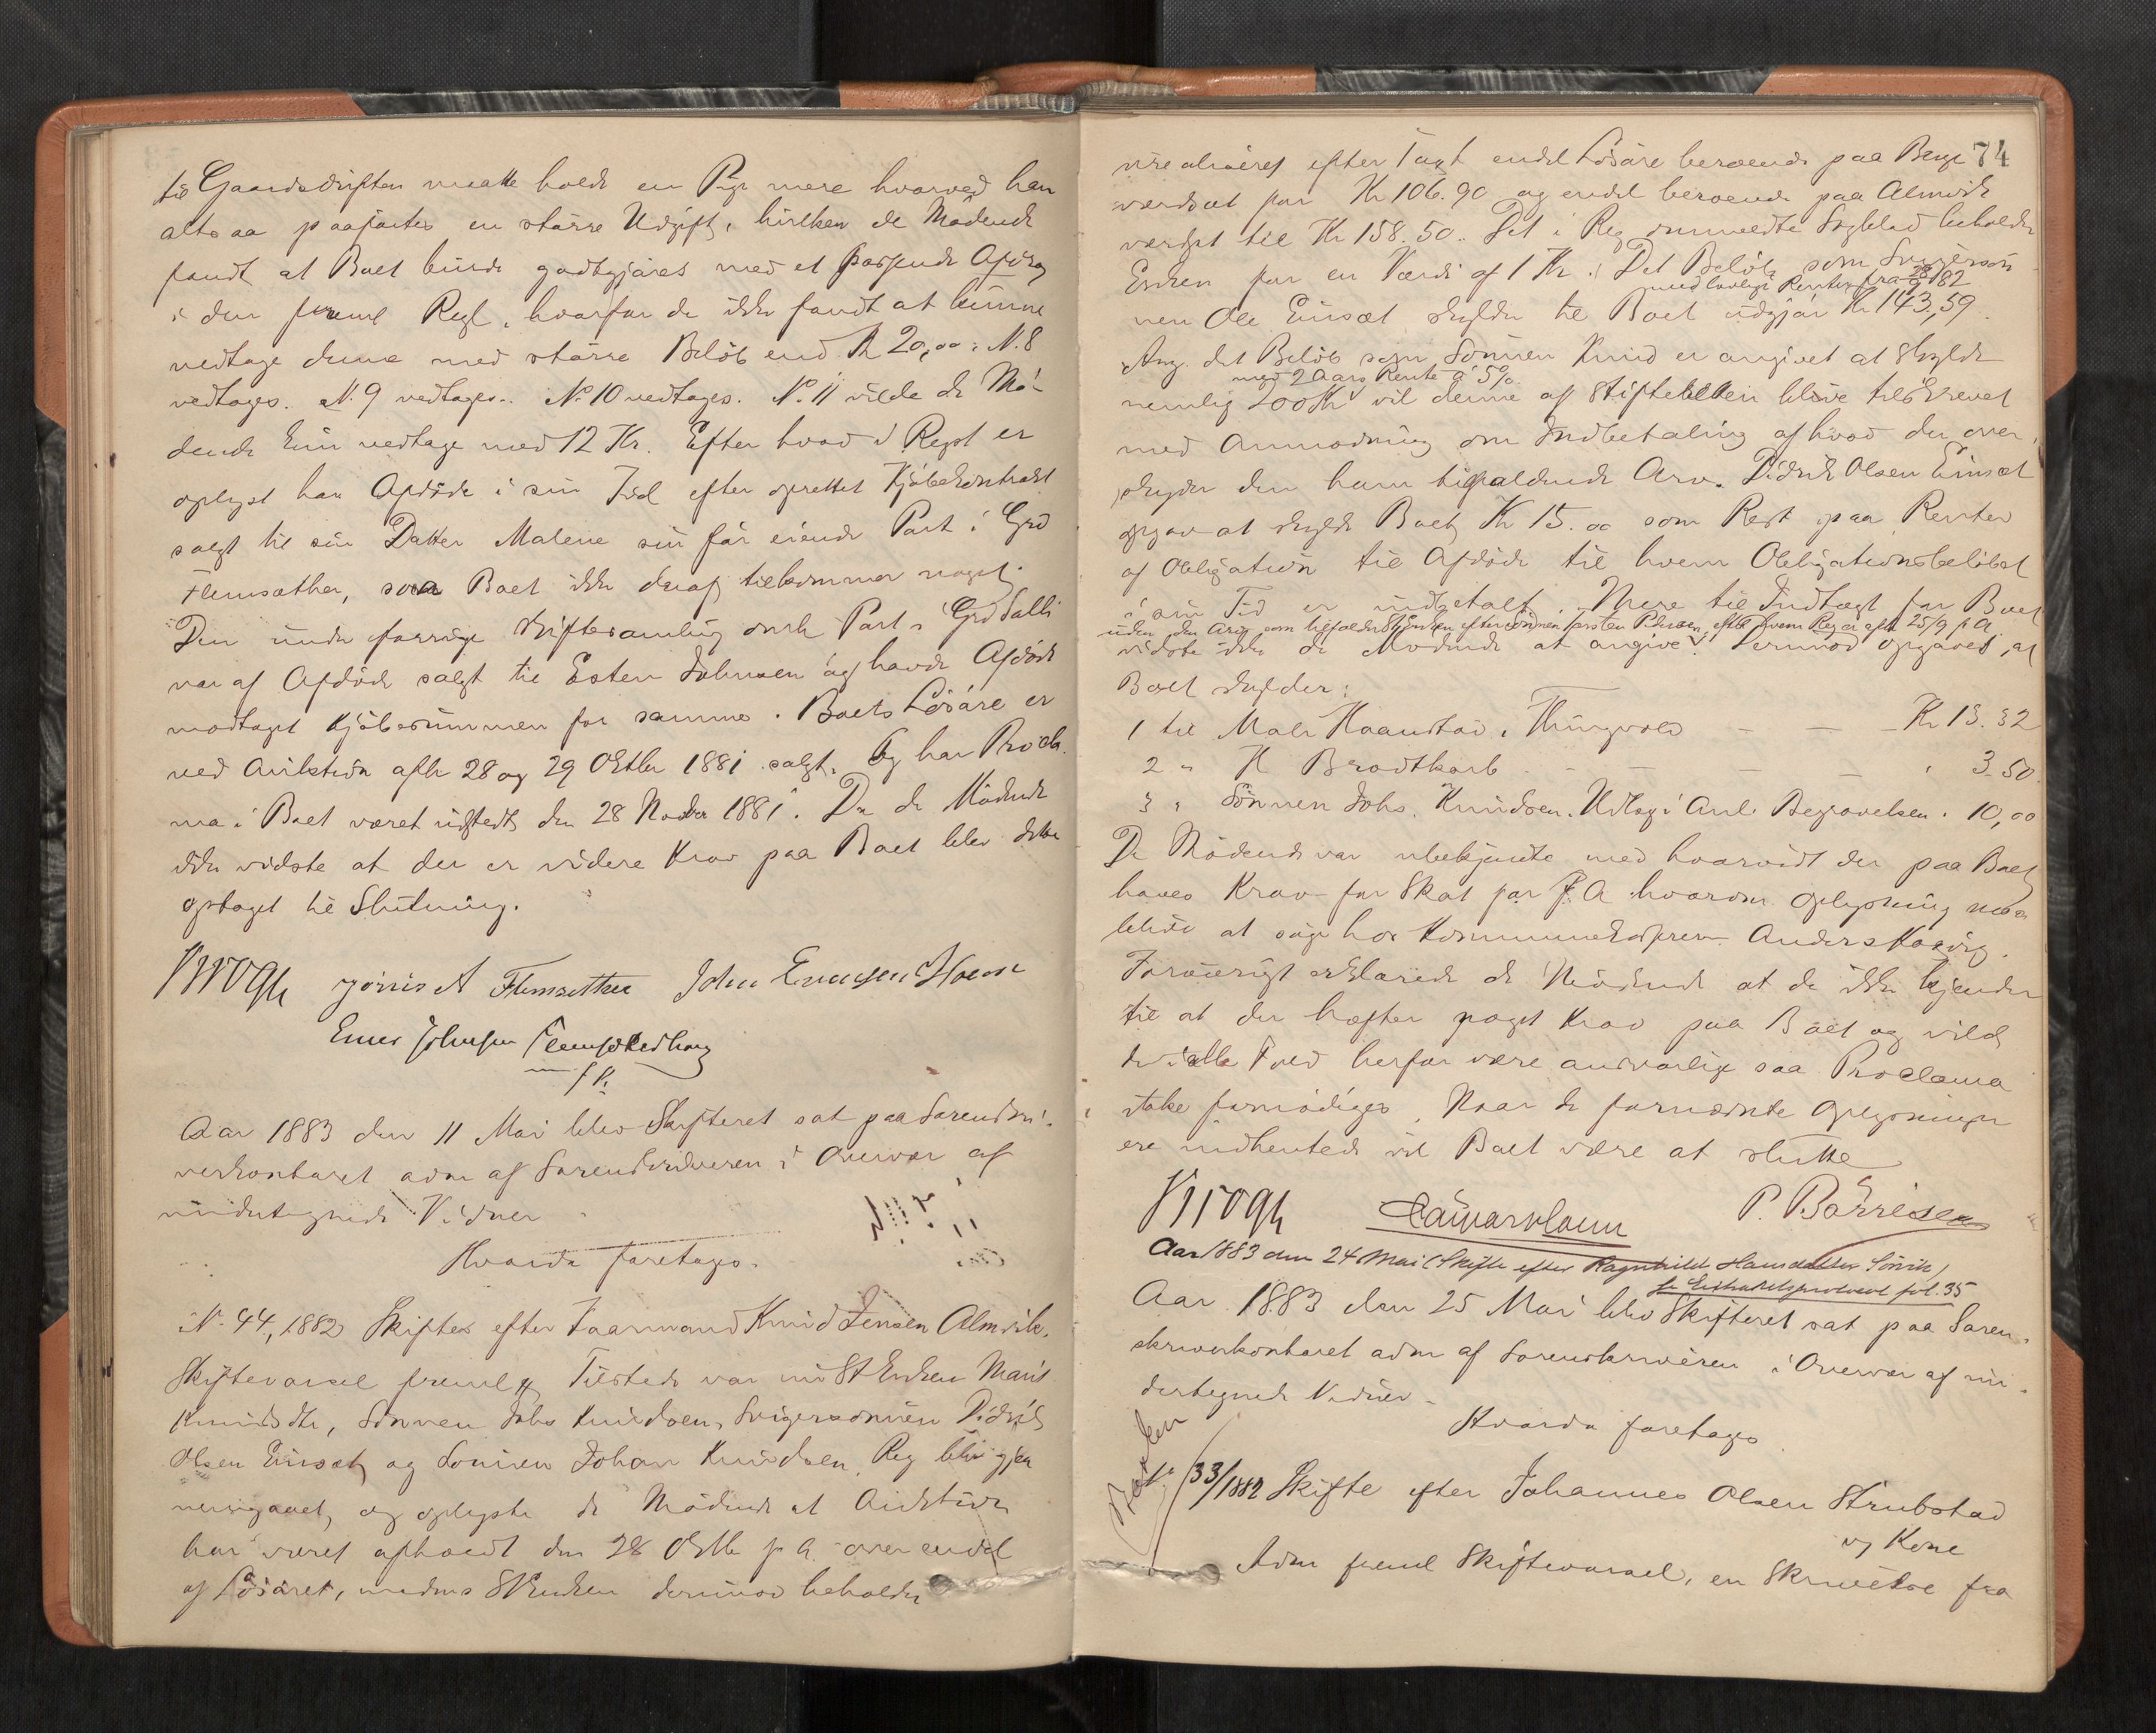 til Gaardsdriften maatte holde en Pige mere hvorved han
altsaa paaførtes en større Udgift, hvilken de Mødende
fandt at Boet burde godtgjøres med et passende Afdrag
i den freml Regl, hvorfor de ikke fandt at kunne
vedtage denne med større Beløb end Kr 20,00. N. 8
vedtages. N. 9 vedtages. No 10 vedtages. No 11 vilde de Mø-
dende kun vedtage med 12 Kr. Efter hvad i Regst er
oplyst har Afdøde i sin Tid efter oprettet Kjøbekontrakt
solgt til sin Datter Malene sin før eiende Part i Grd
Flemsæther, saa Boet ikke deraf tilkommer noget.
Den under forrige Skiftesamling Part i Grd
var af Afdøde solgt til Esten Johnsen og havde Afdøde
modtaget Kjøbesummen for samme. Boets Løsøre er
ved Auktion afh 28 og 29 Oktbr 1881 solgt. Og har Procla-
ma i Boet været udstedt den 28 Novbr 1881. Da de Mødende
ikke vidste at der er videre Krav paa Boet blev dette
optaget til Slutning.
Krogh Jørris A Flemsæther John
Johnsen
m f P.
Aar 1883 den 11 Mai blev Skifteret sat paa Sorenskri-
verkontoret adm af Sorenskriveren i Overvær af
undertegnede Vidner
Hvorda foretages.
N. 44, 1882 Skiftet efter Faarmand Knud Jensen Almvik.
Skiftevarsel freml Tilstede var nu St Enken Marit
Knudsdtr, Sønnen Johs Knudsen, Svigersønnen Didrik
Olsen Einset og Sønnen Johan Knudsen. Reg blev gjen
nemgaaet, og oplyste de Mødende at Auktion
har været afholdt den 28 Oktbr f A over endel
af Løsøret, medens St Enken derimod beholder
74
urealiseret efter Taxt endel Løsøre beroende paa Berge
værdsat for Kr 106.90 og endel beroende paa Almvik
værdsat til Kr 158.50. Det i Reg ommeldte Sagblad beholder
Enken for en Værdi af 1 Kr. Det Beløb som Svigersøn
med lovlige Renter fra 28/9 82
nen Ole Einset skylder til Boet udgjør Kr 143,59
Ang. det Beløb som Sønnen Knud er angivet at skylde
med 2 Aars Rente a 5%
nemlig 200 Kr vil denne af Skifteretten blive tilskrevet
med Anmodning om Indbetaling af hvad der over-
skyder den ham tilfaldende Arv. Didrik Olsen Einset
opgav at skylde Boet Kr 15.00 som Rest paa Renter
af Obligation til Afdøde til hvem Obligationsbeløbet
i sin Tid er indbetalt. Mere til Indtægt for Boet
uden den Arv, som tilfalder efter Sønnen Pedersen, efter hvem Reg er afh 25/9 f A
vidste ikke de Mødende at angive. Derimod opgaves, at
Boet skylder:
1 til Maler Haanstad, Thingvold — — Kr 13.32
2 " H Brodtkorb — — — " 3.50.
3 " Sønnen Johs. Knudsen. Udlæg i Anl Begravelsen . 10,00
De Mødende var ubekjendte med hvorvidt der paa Boet
haves Krav for Skat for f. A hvorom Oplysning maa
blive at søge hos Kommunekasserer Anders
Forøvrigt erklærede de Mødende at de ikke kjender
til at der hæfter noget Krav paa Boet og vil
de i alle Fald herfor være ansvarlig saa Proclama
ikke formødiges. Naar de fornødne Oplysninger
ere indhentede vil Boet være at slutte
Krogh P. Børresen
Aar 1883 den 24 Mai (Skifte efter Ragnhild Hansdatter
se Extraretsprotocol fol. 35
Aar 1883 den 25 Mai blev Skifteret sat paa Soren-
skriverkontoret adm af Sorenskriveren i Overvær af un-
dertegnede Vidner
Hvorda foretages
No 33/1882 Skifte efter Johannes Olsen Strubstad
og Kone
Adm freml Skiftevarsel, en Skrivelse fra